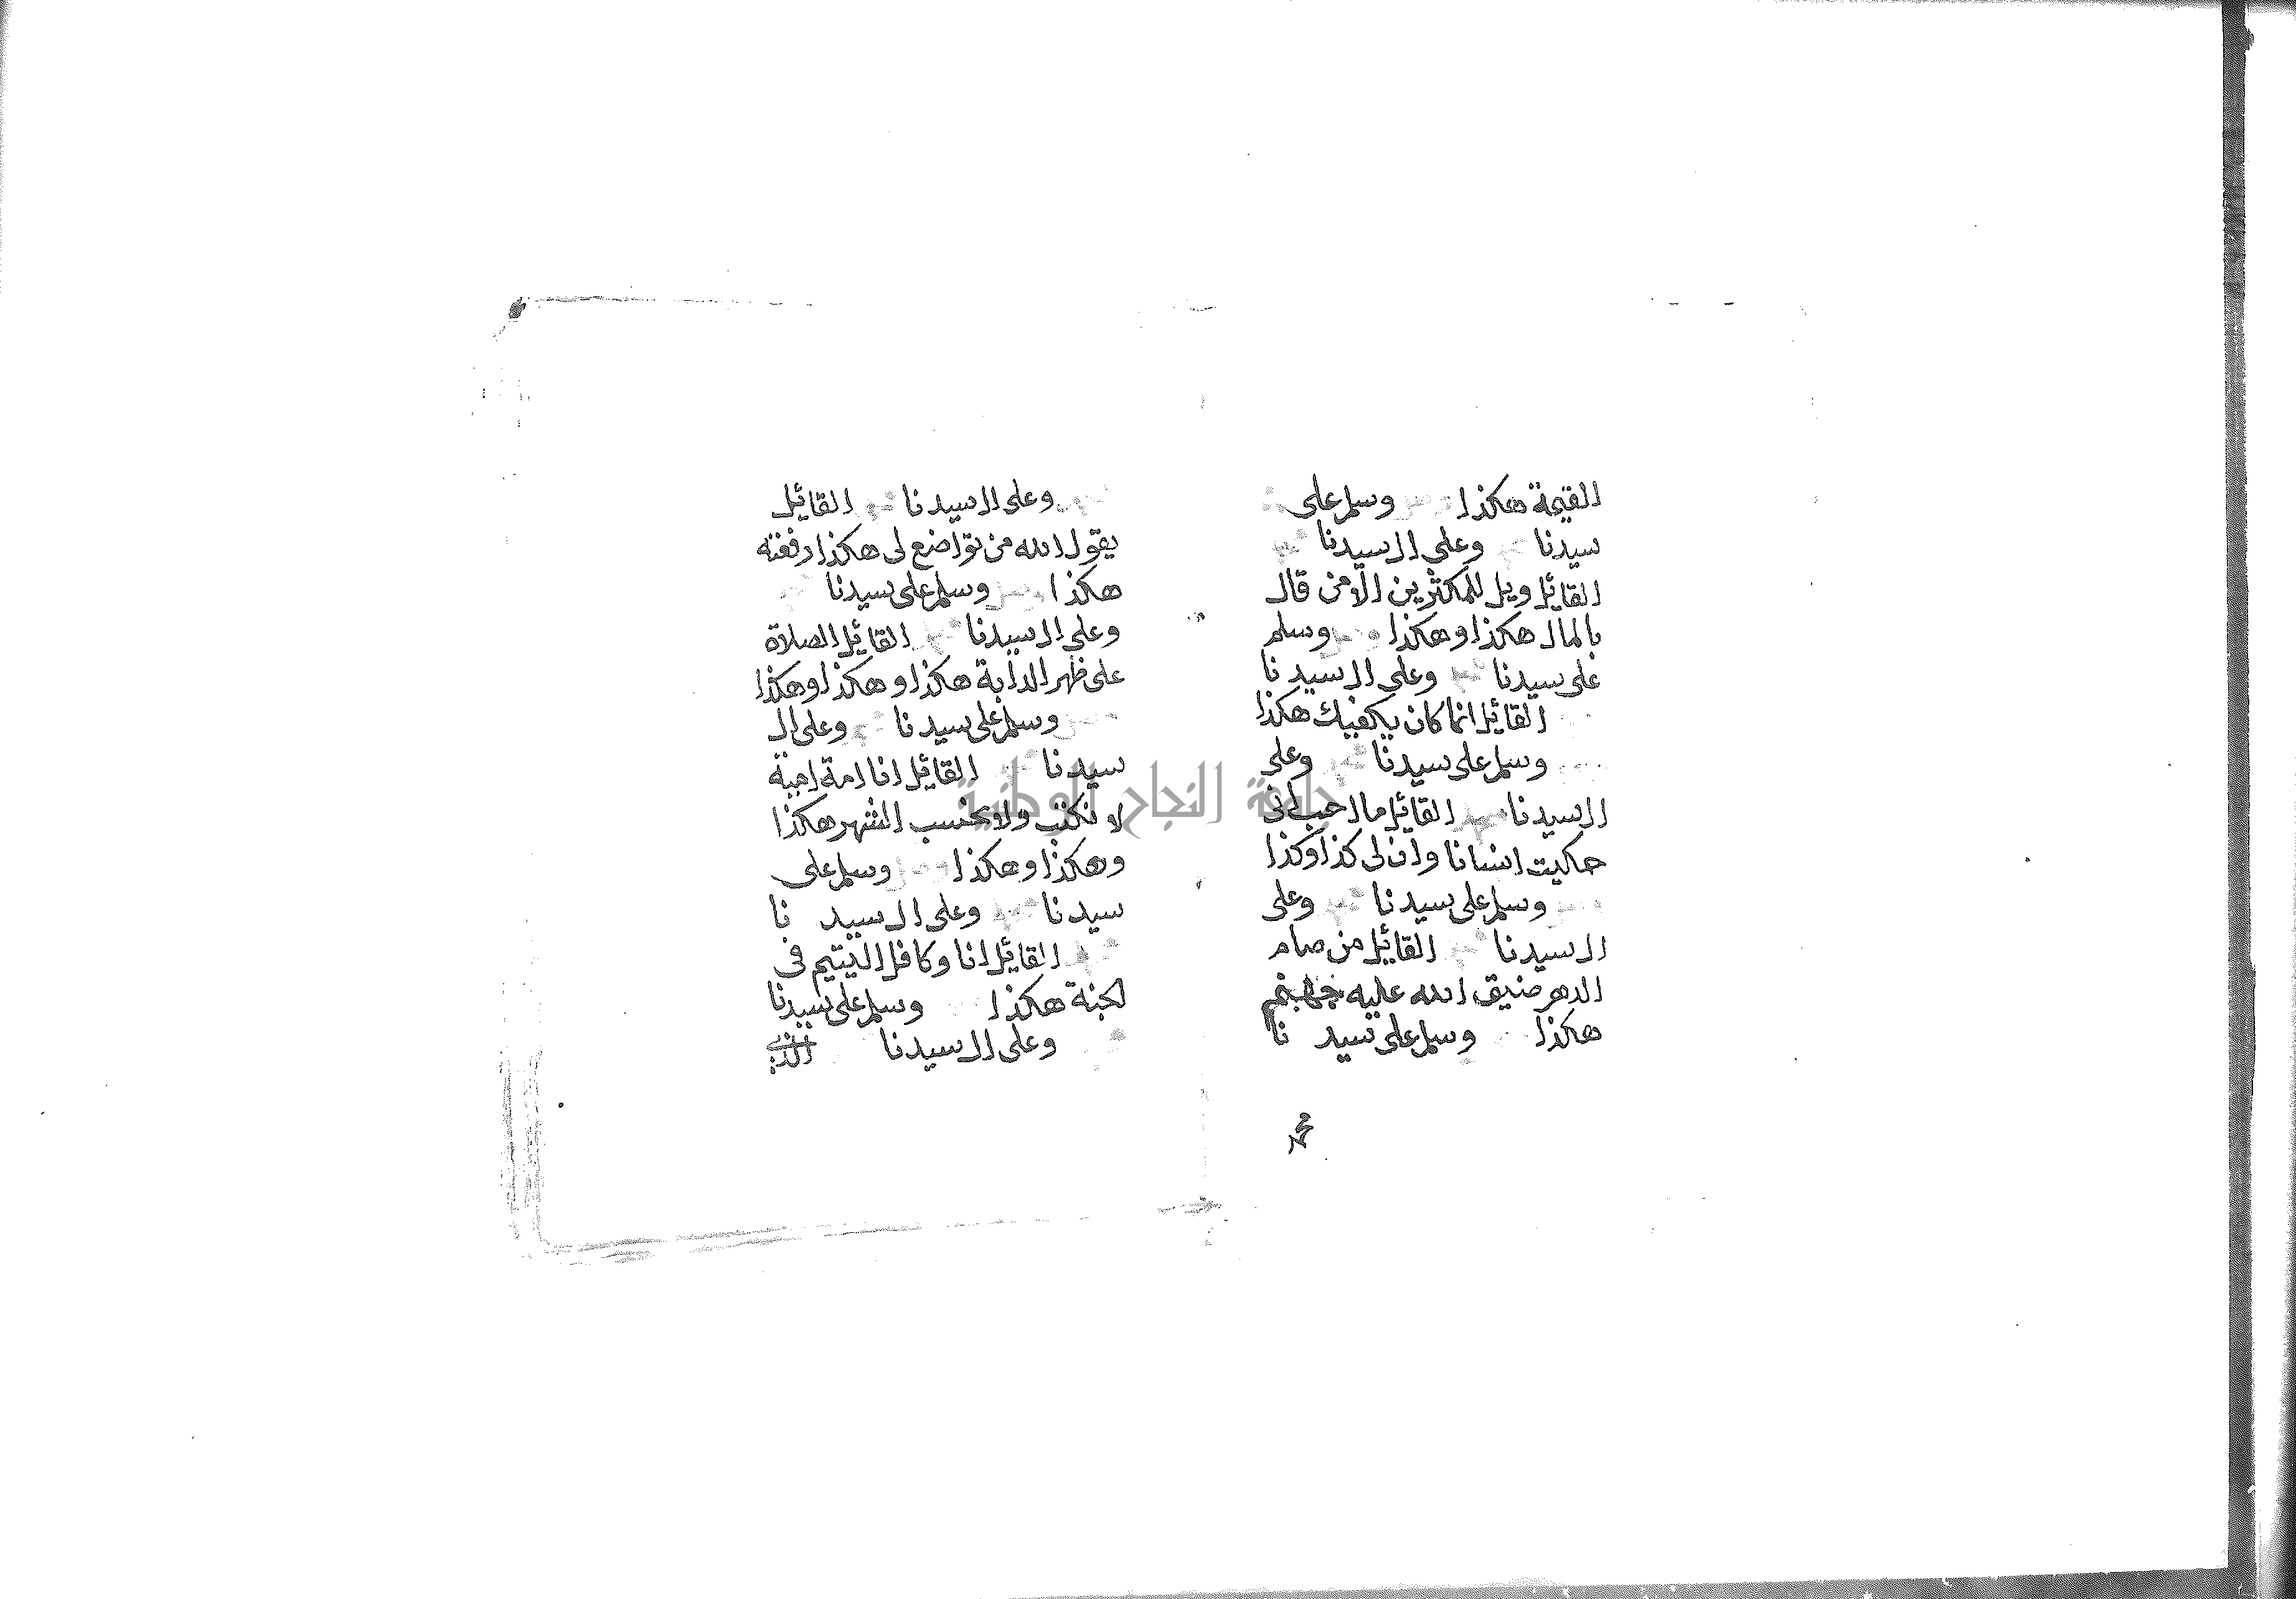 القيمة هكذا وسلم على
سيدنا وعلى ال سيدنا
القائل ويل للمكثرين الا من قال
بالمال هكذا وهكذا وسلم
على سيدنا وعلى ال سيدنا
القائل انما كان يكفيك هكذا
وسلم على سيدنا وعلى
ال سيدنا القائل ما احب انى
حكيت انسانا وان لى كذا وكذا
وسلم على سيدنا وعلى
ال سيدنا القائل من صام
الدهر ضيق الله عليه جهنم
هكذا وسلم على سيد نا
محمد
وعلى ال سيدنا القائل
يقول الله من تواضع لى هكذا رفعته
هكذا وسلم على سيدنا
وعلى ال سيدنا القائل الصلاة
على ظهر الدابة هكذا وهكذا وهكذا
وسلم على سيدنا وعلى ال
سيدنا القائل انا امة امية
لا نكتب ولا نحسب الشهر هكذا
وهكذا وهكذا وسلم على
سيدنا وعلى ال سيد نا
القائل انا وكافل اليتيم فى
الجنة هكذا وسلم على سيدنا
وعلى ال سيدنا الذى
جامعة النجاح الوطنية